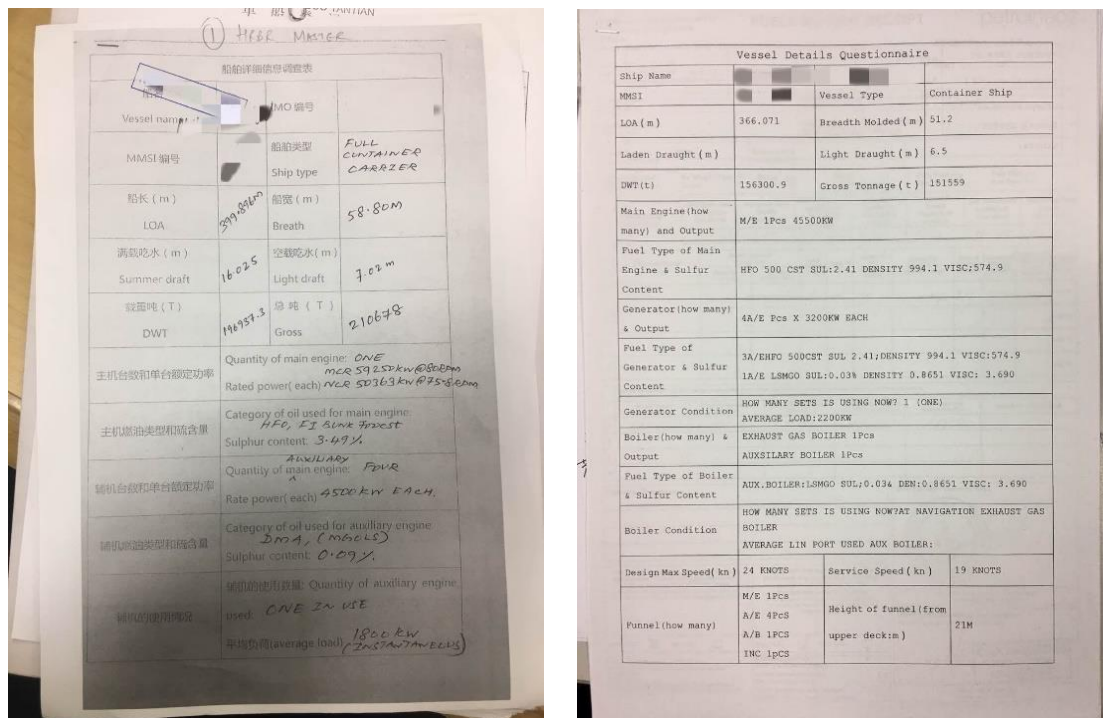 YANTIAN
① HPGR MASTER
船舶详细信息调查表
Vessel name
IMO 编号
MMSI 编号
船舶类型
Ship type
FULL
CONTAINER
CARRIER
船长（m）
LOA
399.896m
船宽（m）
Breath
58.80M
满载吃水（m）
Summer draft
16.025
空载吃水（m）
Light draft
7.02m
载重吨（T）
DWT
196957.3
总吨（T）
Gross
210678
主机台数和单台额定功率
Quantity of main engine: ONE
MCR 59250kW@80RPM
Rated power(each) NCR 50363kW@75.8RPM
主机燃油类型和硫含量
Category of oil used for main engine:
HFO,
Sulphur content: 3.49%
辅机台数和单台额定功率
AUXILIARY
Quantity of main engine: FOUR
Rate power(each) 4500KW EACH.
辅机燃油类型和硫含量
Category of oil used for auxiliary engine
DMA, (MGOLS)
Sulphur content: 0.09%
辅机的使用情况
辅机的使用数量: Quantity of auxiliary engine
used: ONE IN USE
平均负荷(average load) 1800KW
(INSTANTANEOUS)
Vessel Details Questionnaire
Ship Name
MMSI
Vessel Type
Container Ship
LOA(m)
366.071
Breadth Molded(m)
51.2
Laden Draught(m)
Light Draught(m)
6.5
DWT(t)
156300.9
Gross Tonnage(t)
151559
Main Engine(how
many) and Output
M/E 1Pcs 45500KW
Fuel Type of Main
Engine & Sulfur
Content
HFO 500 CST SUL:2.41 DENSITY 994.1 VISC;574.9
Generator(how many)
& Output
4A/E Pcs X 3200KW EACH
Fuel Type of
Generator & Sulfur
Content
3A/EHFO 500CST SUL 2.41;DENSITY 994.1 VISC:574.9
1A/E LSMGO SUL:0.03% DENSITY 0.8651 VISC: 3.690
Generator Condition
HOW MANY SETS IS USING NOW? 1 (ONE)
AVERAGE LOAD:2200KW
Boiler(how many) &
Output
EXHAUST GAS BOILER 1Pcs
AUXSILARY BOILER 1Pcs
Fuel Type of Boiler
& Sulfur Content
AUX.BOILER:LSMGO SUL;0.03% DEN:0.8651 VISC: 3.690
Boiler Condition
HOW MANY SETS IS USING NOW?AT NAVIGATION EXHAUST GAS
BOILER
AVERAGE LIN PORT USED AUX BOILER:
Design Max Speed(kn)
24 KNOTS
Service Speed(kn)
19 KNOTS
Funnel(how many)
M/E 1Pcs
A/E 4PcS
A/B 1PCS
INC 1pCS
Height of funnel(from
upper deck:m)
21M